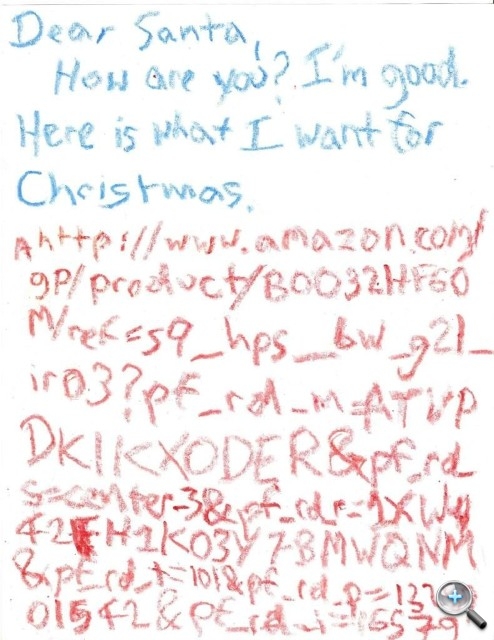 Dear Santa,
How are you? I'm good.
Here is what I want for
Christmas.
http://www.amazon.com/
gp/product/B0032HF60
M/ref=s9_hps_bw_g21_
ir03?pf_rd_m=ATVP
DKIKX0DER&pf_rd_
s=center-3&pf_rd_r=1XWY
42FH1K03Y7BMWQNM
&pf_rd_t=101&pf_rd_p=
01542&pf_rd_i=16579